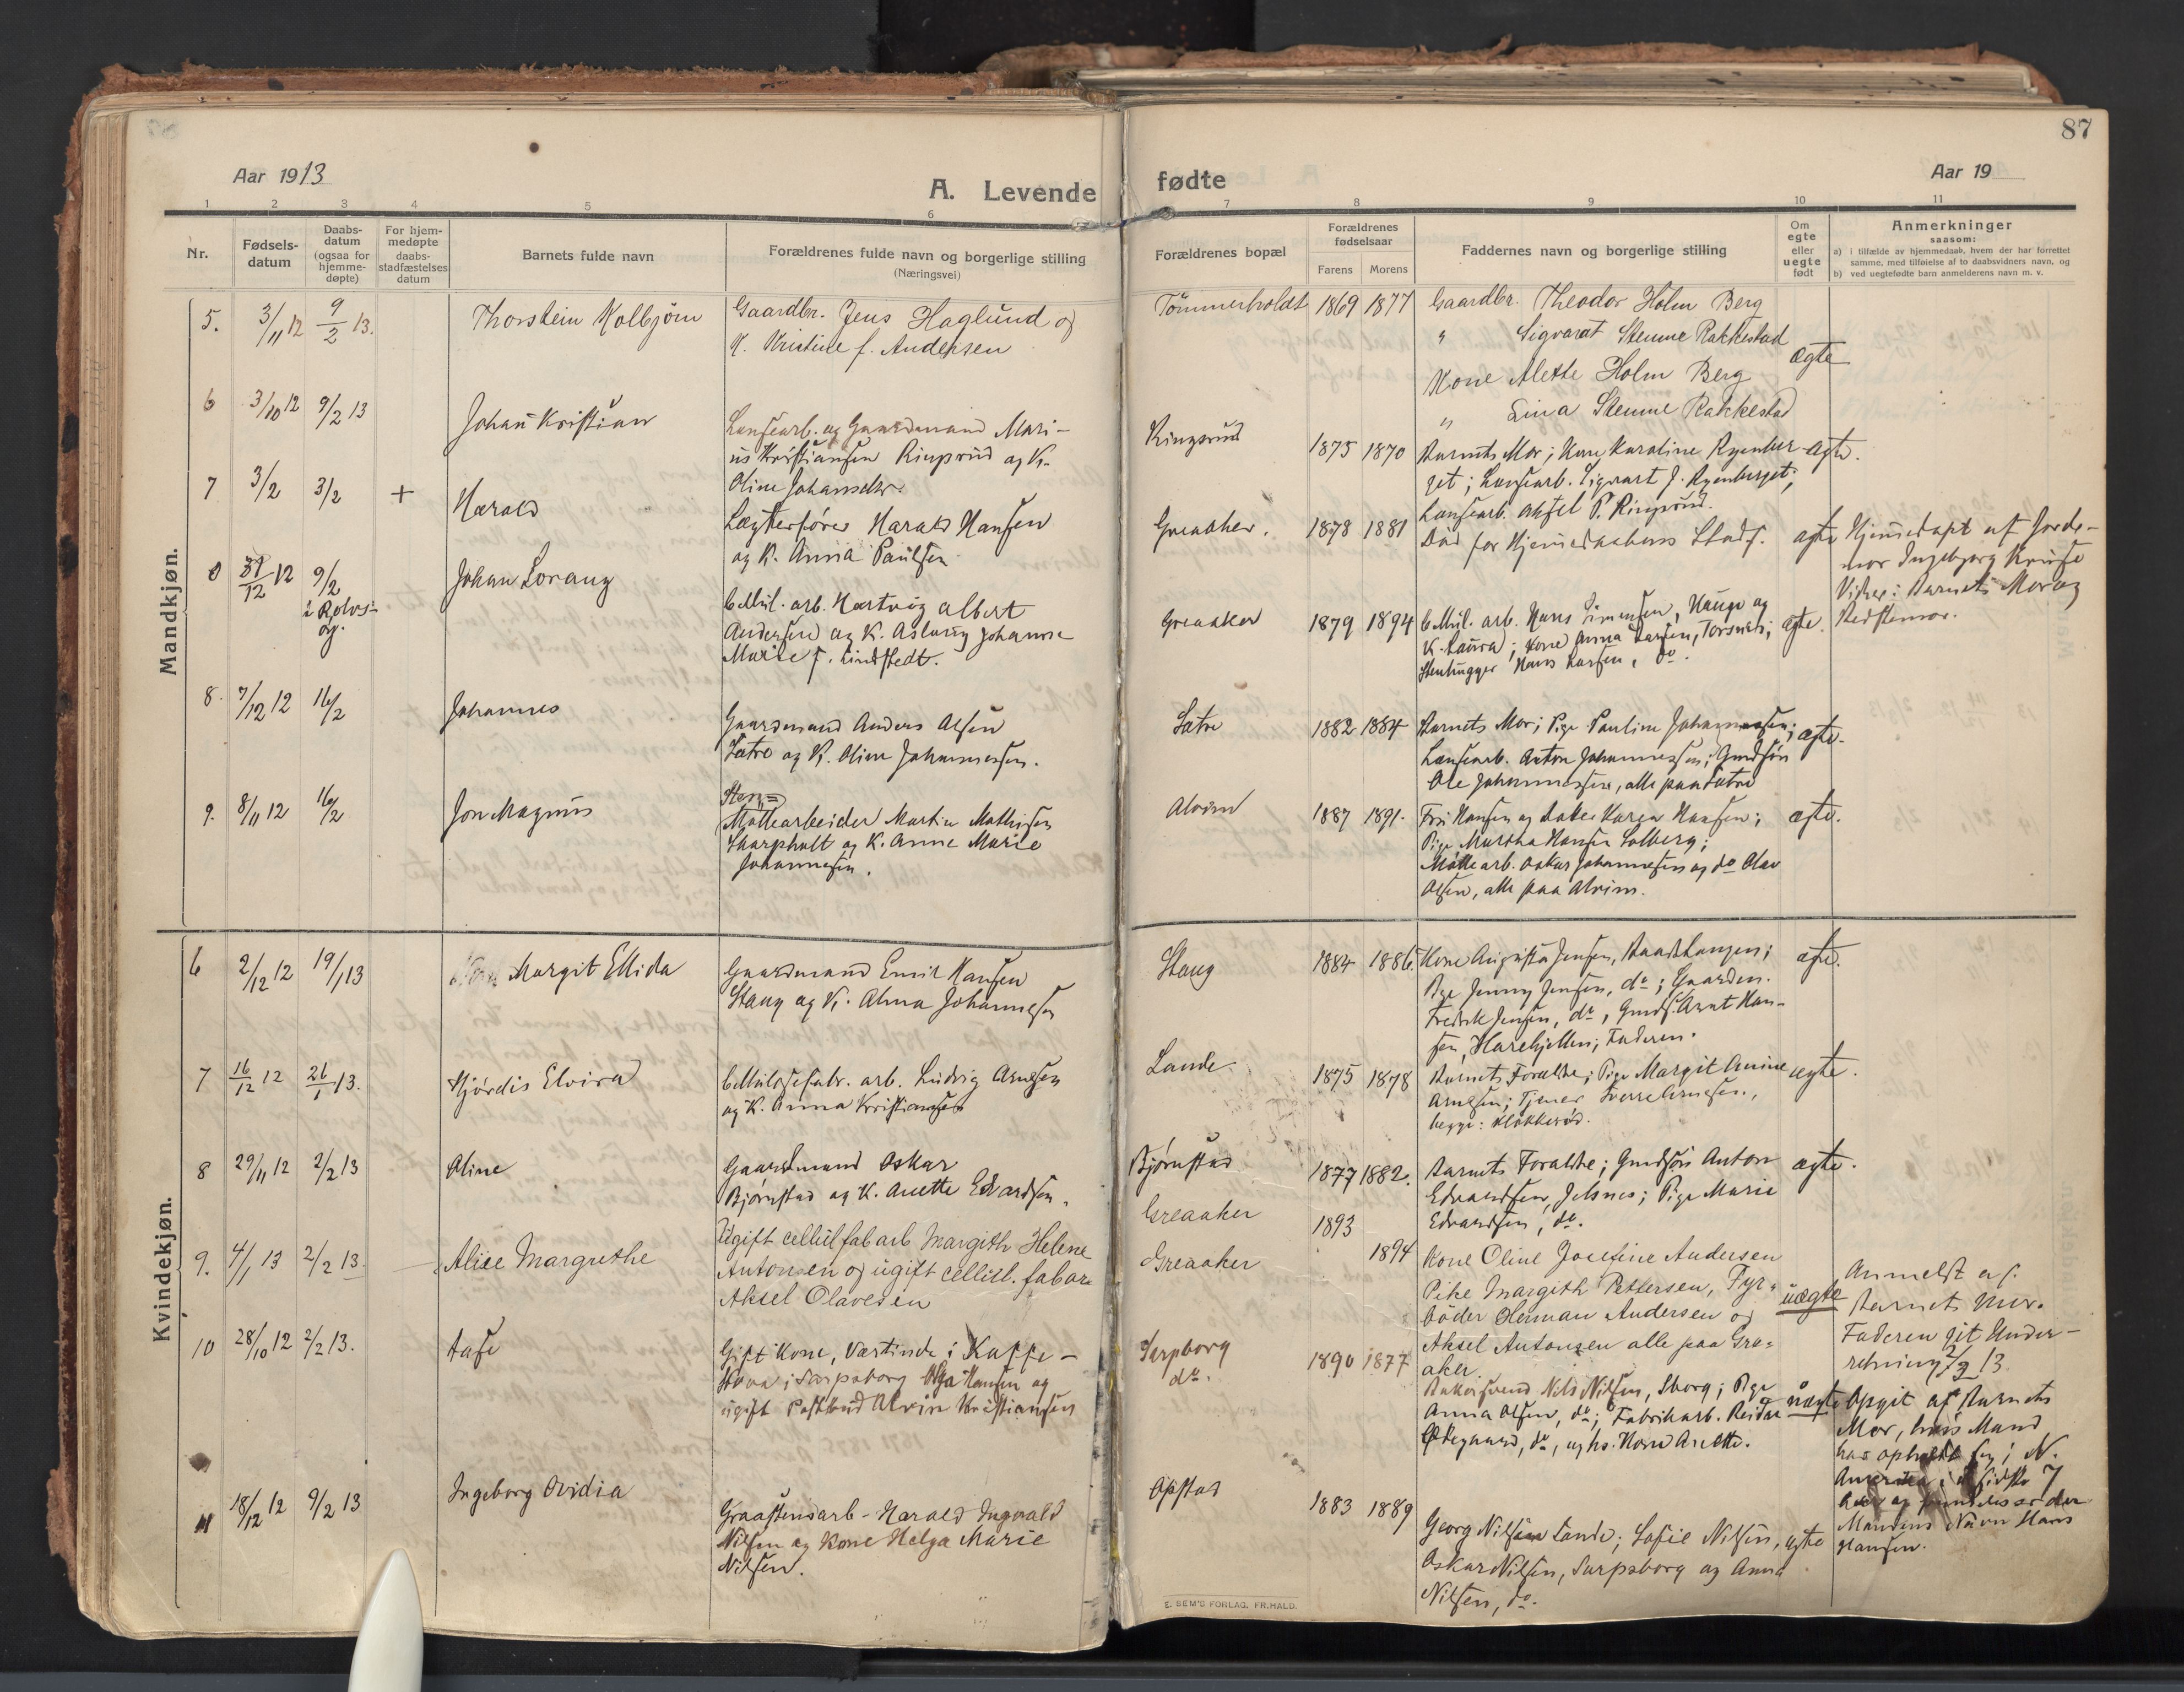 87
Aar 1913
A. Levende
fødte
Aar 19
1 2 3 4 5 6 7 8 9 10 11
Nr.
Fødsels-
datum
Daabs-
datum
(ogsaa for
hjemme-
døpte)
For hjem-
medøpte
daabs-
stadfæstelses
datum
Barnets fulde navn
Forældrenes fulde navn og borgerlige stilling
(Næringsvei)
Forældrenes bopæl
Forældrenes
fødselsaar
Farens Morens
Faddernes navn og borgerlige stilling
Om
egte
eller
uegte
født
Anmerkninger
saasom:
a) i tilfælde av hjemmedaab, hvem der har forrettet
samme, med tilføielse af to daabsvidners navn, og
b) ved uegtefødte barn anmelderens navn m. v.
Mandkjøn.
5. 3/11 12 9/2 13. Thorstein Kolbjörn
Gaardbr. Jens Haglund og
K. Kristine f. Andersen
Tömmerholdt 1869 1877
Gaardbr. Theodor Holm Berg
" Sigvarat Stemme Rakkestad
Kone Alette Holm Berg
" Lina Stemme Rakkestad
ægte
6 3/10 12 9/2 13 Johan Kristian
Lensearb. og Gaardmand Mari-
us Kristiansen Ringsrud og K.
Oline Johansdtr.
Ringsrud 1875 1870
Barnets Mor; Kone Karoline Ryenber-
get; Lensearb. Sigvart J. Ryenberget;
Lensearb. Aksel P. Ringsrud.
ægte.
7 3/2 3/2 + Harald
Lægterfører Harald Hansen
og K. Anna Paulsen
Greaaker. 1878 1881
Død før Hjemedaabens Stadf.
ægte
Hjemedøpt af Jorde-
mor Ingeborg Kruse
Vidner: Barnets Mor og
Bedstemor.
8 31/12 12 9/2
i Rolvs-
øy.
Johan Lorang
Cellul. arb. Hartvig Albert
Andersen og K. Aslaug Johanne
Marie f. Lindstedt.
Greaaker 1879 1894
Cellul. arb. Hans Simensen, Hauge og
K. Laura; Kone Anna Larsen, Torsnes;
Stenhugger Hans Larsen, do.
ægte.
8. 7/12 12 16/2 Johannes
Gaardmand Anders Olsen
Sætre og K. Oline Johannessen.
Sætre 1882 1884
Barnets Mor; Pige Pauline Johannessen;
Lensearb. Anton Johannessen; Gmdsøn
Ole Johannessen, alle paa Sætre
ægte.
9. 8/11 12 16/2 Jon Magnus
Sten=
Møllearbeider Martin Mathisen
Skarpholt og K. Anne Marie
Johannesen.
Alvim 1887 1891.
Fru Hansen og Enke Karen Hansen;
Pige Martha Hansen Solberg;
Møllearb. Oskar Johannesen og do Olav
Olsen, alle paa Alvim.
ægte.
Kvindekjøn.
6 2/12 12 19/1 13 Margit Ellida
Gaardmand Emil Hansen
Stang og K. Alma Johannesen
Stang 1884 1886.
Kone Augusta Jensen,
Pige Jenny Jensen, do; Gaardm.
Fredrik Jensen, do, Gmds. Arnt Han-
sen, Harehjellen; Faderen.
ægte.
7 16/12 12 26/1 13. Hjördis Elvira
Cellulosefabr. arb. Ludvig Arnesen
og K. Anna Kristiansen
Lande 1875 1878
Barnets Forældre; Pige Margit Amine
Arnesen; Tjener Sverre Arnesen,
begge: Klokkerød.
ægte.
8 29/11 12 2/2 13 Oline
Gaardmand Oskar
Bjørnstad og K. Anette Edvardsen.
Bjørnstad 1877 1882.
Barnets Forældre; Gmdsøn Anton
Edvardsen, Jelsnes; Pige Marie
Edvardsen, do.
ægte.
9. 4/1 13 2/2 13 Alice Margrethe
Ugift cellulfabarb Margith Helene
Antonsen og ugift cellul. fabar
Aksel Olavesen
Greaaker 1893
Greaaker 1894
Kone Oline Josefine Andersen
Pike Margith Pettersen, Fyr=
böder Herman Andersen og
Aksel Antonsen alle paa Gre=
aker
uægte
Anmeldt af
Barnets Mor.
Faderen git Under-
retning 2/2 13.
10 28/10 12 2/2 13. Aase
Gift Kone, Værtinde i Kaffe-
stova i Sarpsborg Olga Hansen og
ugift Postbud Alvin Kristiansen
Sarpsborg
do.
1890 1877
Bakersvend Nils Nilsen, Sborg; Pige
Anna Olsen, do; Fabrikarb. Reidar
Ødegaard, do, og hs. Kone Anette.
uægte
Opgit af Barnets
Mor, hvis Mand
har opholdt sig i N.
Amerika i de sidste 7
Aar og
Mandens Navn Hans
Hansen.
11 18/12 12 9/2 13 Ingeborg Ovidia
Graastensarb. Harald Ingvald
Nilsen og Kone Helga Marie
Nilsen.
Opstad 1883 1889
Georg Nilsen Lande; Sofie Nilsen,
Oskar Nilsen, Sarpsborg og Anna
Nilsen, do.
ægte
E. SEM'S FORLAG. FR.HALD.